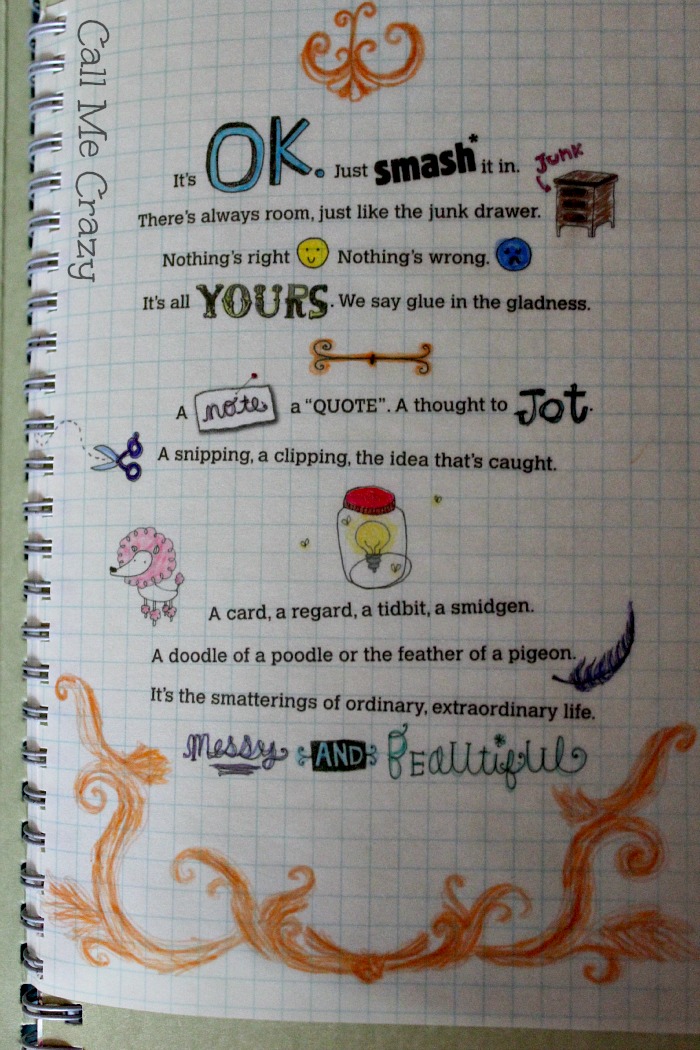 Call Me Crazy
It's OK. Just smash* it in. Junk
There's always room, just like the junk drawer.
Nothing's right Nothing's wrong.
It's all YOURS. We say glue in the gladness.
A note a "QUOTE". A thought to Jot.
A snipping, a clipping, the idea that's caught.
A card, a regard, a tidbit, a smidgen.
A doodle of a poodle or the feather of a pigeon.
It's the smatterings of ordinary, extraordinary life.
Messy AND BEAUtiful